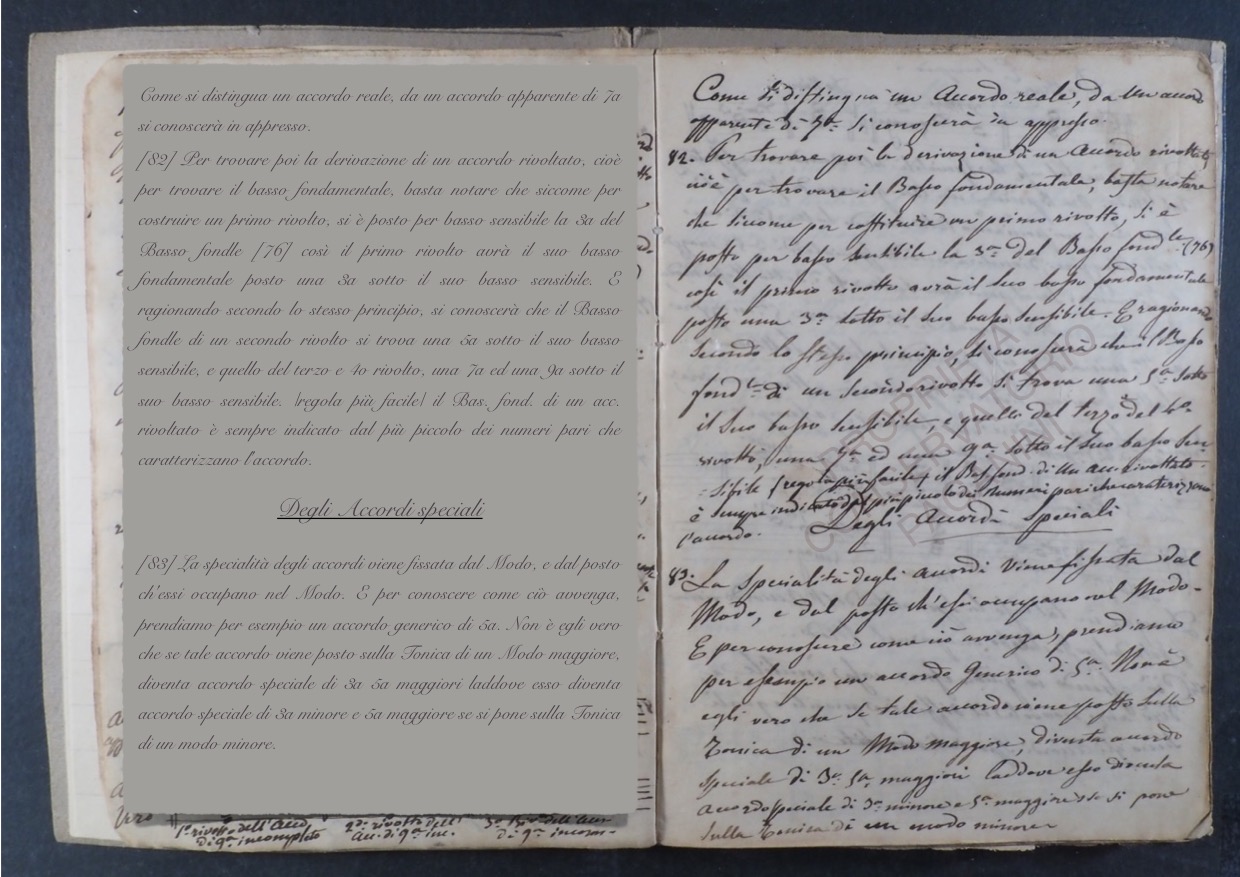 Come si distingua un accordo reale, da un accordo apparente di 7a
si conoscerà in appresso.
[82] Per trovare poi la derivazione di un accordo rivoltato, cioè
per trovare il basso fondamentale, basta notare che siccome per
costruire un primo rivolto, si è posto per basso sensibile la 3a del
Basso fondle [76] così il primo rivolto avrà il suo basso
fondamentale posto una 3a sotto il suo basso sensibile. E
ragionando secondo lo stesso principio, si conoscerà che il Basso
fondle di un secondo rivolto si trova una 5a sotto il suo basso
sensibile, e quello del terzo e 4o rivolto, una 7a ed una 9a sotto il
suo basso sensibile. |regola più facile| il Bas. fond. di un acc.
rivoltato è sempre indicato dal più piccolo dei numeri pari che
caratterizzano l'accordo.
Degli Accordi speciali
[83] La specialità degli accordi viene fissata dal Modo, e dal posto
ch'essi occupano nel Modo. E per conoscere come ciò avvenga,
prendiamo per esempio un accordo generico di 5a. Non è egli vero
che se tale accordo viene posto sulla Tonica di un Modo maggiore,
diventa accordo speciale di 3a 5a maggiori laddove esso diventa
accordo speciale di 3a minore e 5a maggiore se si pone sulla Tonica
di un modo minore.
1o rivolto dell'Acco 2do rivolto dell'
di 9a incompleto Acc. di 9a inc. di 9a incom-
Come si distingua un Accordo reale, da un accordo
apparente di 7a si conoscerà in appresso.
82. Per trovare poi la derivazione di un accordo rivoltato,
cioè per trovare il Basso fondamentale, basta notare
che siccome per costituire un primo rivolto, si è
posto per basso sensibile la 3a del Basso fondle (76)
così il primo rivolto avrà il suo basso fondamentale
posto una 3a sotto il suo basso sensibile. E ragionando
secondo lo stesso principio, si conoscerà che il Basso
fondle di un secondo rivolto si trova una 5a sotto
il suo basso sensibile, e quello del terzo e del 4o
rivolto, una 7a ed una 9a sotto il suo basso sen-
-sibile (regola più facile) il Bas. fond. di un acc. rivoltato
è sempre indicato dal più piccolo dei numeri pari che caraterizzano
l'accordo.
Degli Accordi speciali
83. La specialità degli accordi viene fissata dal
Modo, e dal posto ch'essi occupano nel Modo-
E per conoscere come ciò avvenga, prendiamo
per esempio un accordo Generico di 5a. Non è
egli vero che se tale accordo viene posto sulla
Tonica di un Modo maggiore, diventa accordo
speciale di 3a 5a maggiori laddove esso diventa
accordo speciale di 3a minore e 5a maggiore se si pone
sulla Tonica di un modo minore